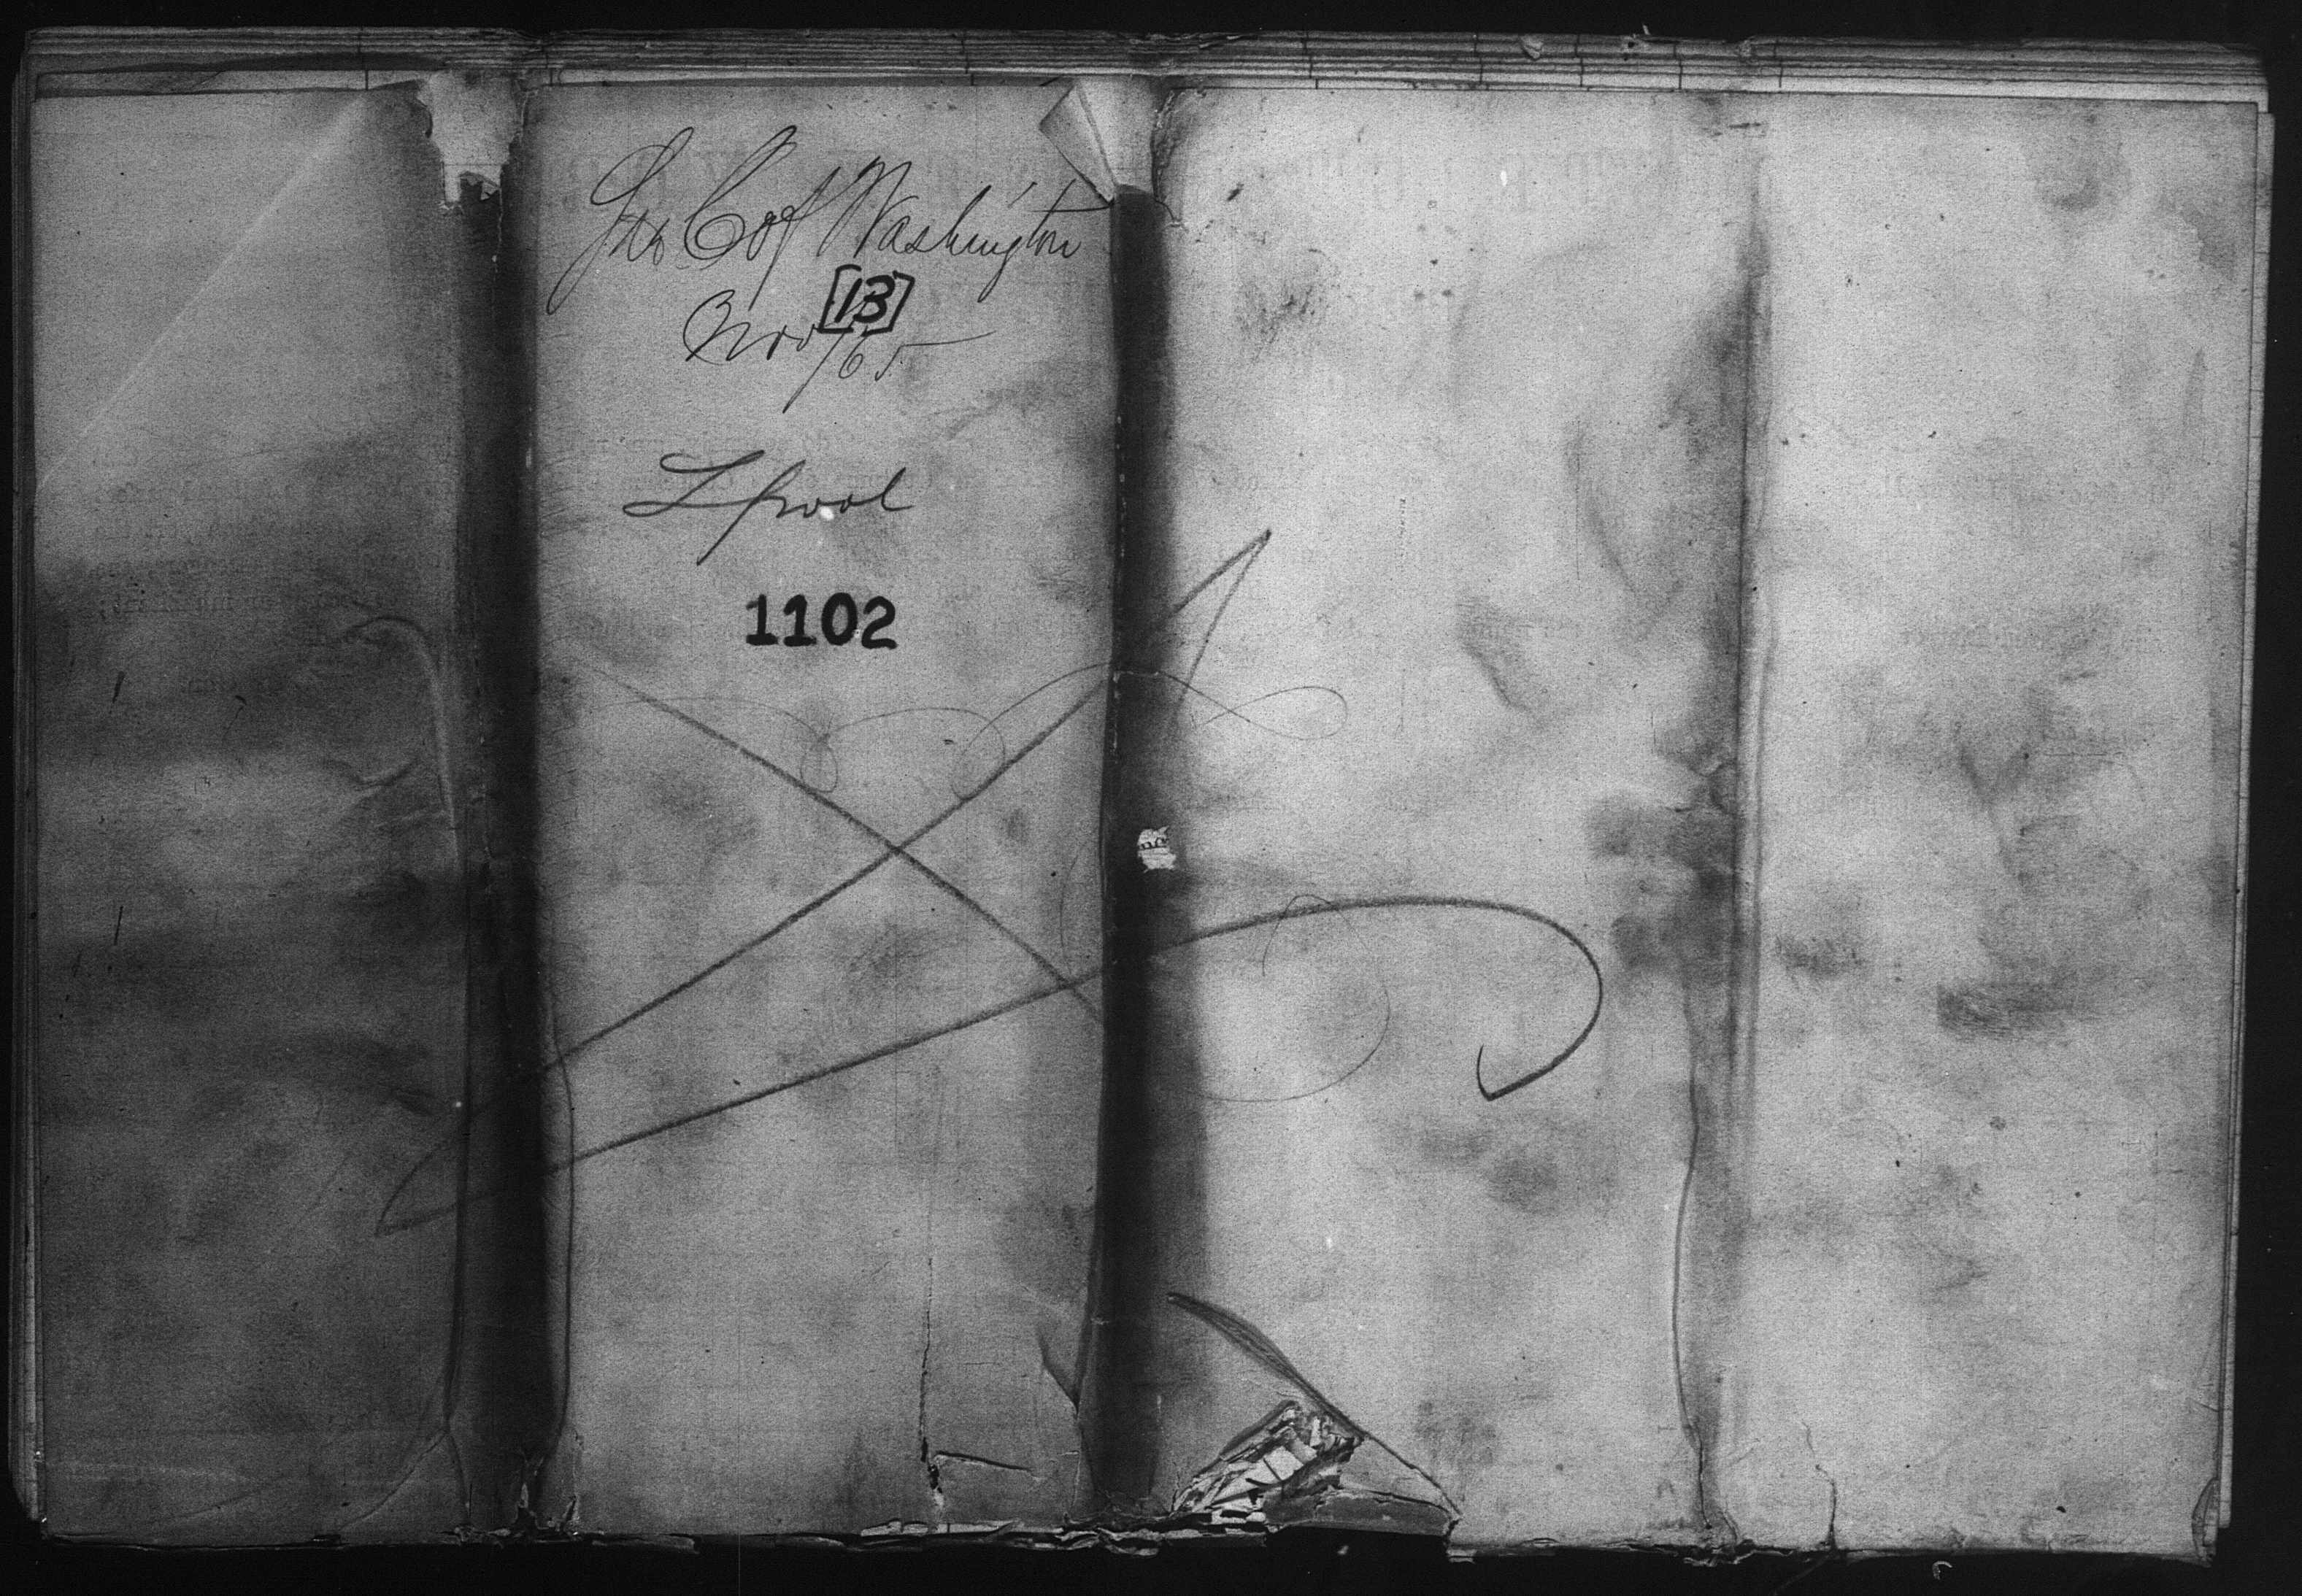 SS City of Washington
[13]
Nov /65
L'pool
1102